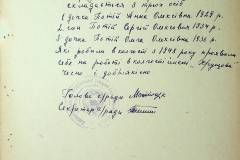 складається з трьох осіб
1 дочка Потій Анна Олексівна 1929 р.
2. син Потій Сергій Олексівич 1934 р.
3 дочка Потій Ольга Олексівна 1936 р.
Які робили в колгоспі з 1948 року проявили
себе на роботі в колгоспі імені Хрущова
чесно і добросовісно
Голова с/ради
Секретар с/ради